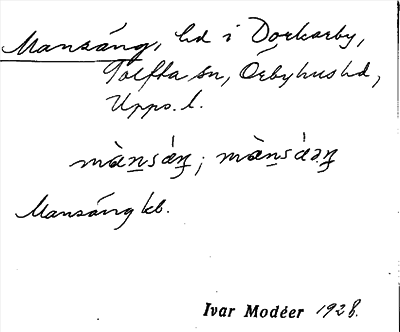 Mansäng, ld i Dorkarby,
Tolfta sn, Örbyhus hd,
Upps. l.
mànsáŋ; mànsáəŋ
Mansäng kb.
Ivar Modéer 1928.